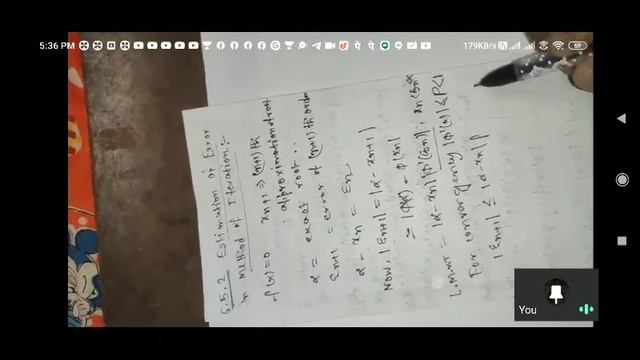 5:36 PM
179KB/s
69
6.5.2 Estimation of Error
in Method of Iteration :-
f(x)=0 xn+1 ⇒ (n+1)th
approximation
α = exact root
εn+1 = error of (n+1)th
α - xn = εn
Now, |εn+1| = |α - xn+1|
= |φ(α) - φ(xn)|
L.M.V.T = |α-xn| |φ'(ξn)|, xn<ξn<α
For convergency |φ'(x)| ≤ ρ<1
|εn+1| ≤ |α-xn| ρ
You